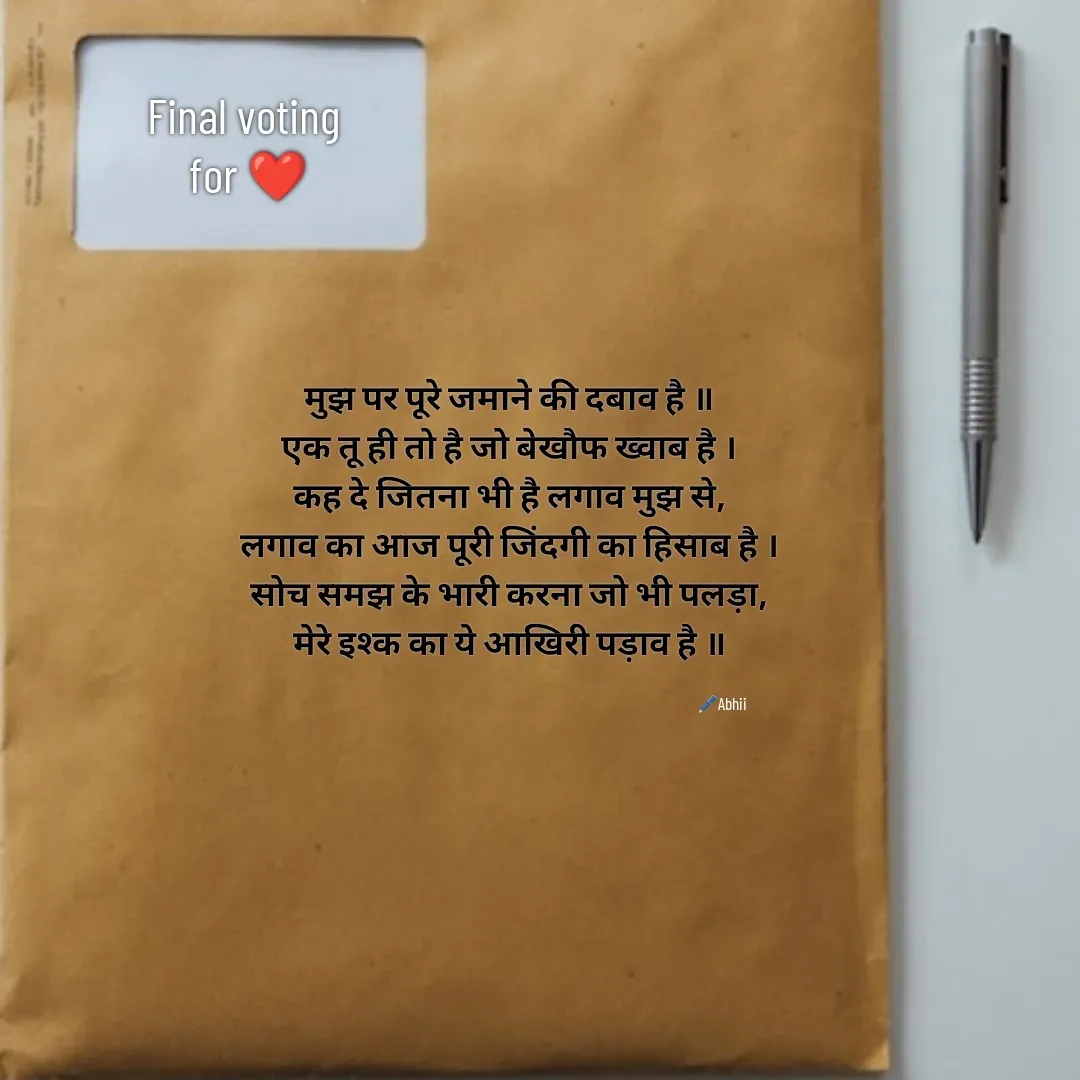 Final voting
for ❤️
मुझ पर पूरे जमाने की दबाव है ॥
एक तू ही तो है जो बेखौफ ख्वाब है ।
कह दे जितना भी है लगाव मुझ से,
लगाव का आज पूरी जिंदगी का हिसाब है ।
सोच समझ के भारी करना जो भी पलड़ा,
मेरे इश्क का ये आखिरी पड़ाव है ॥
🖊️Abhii